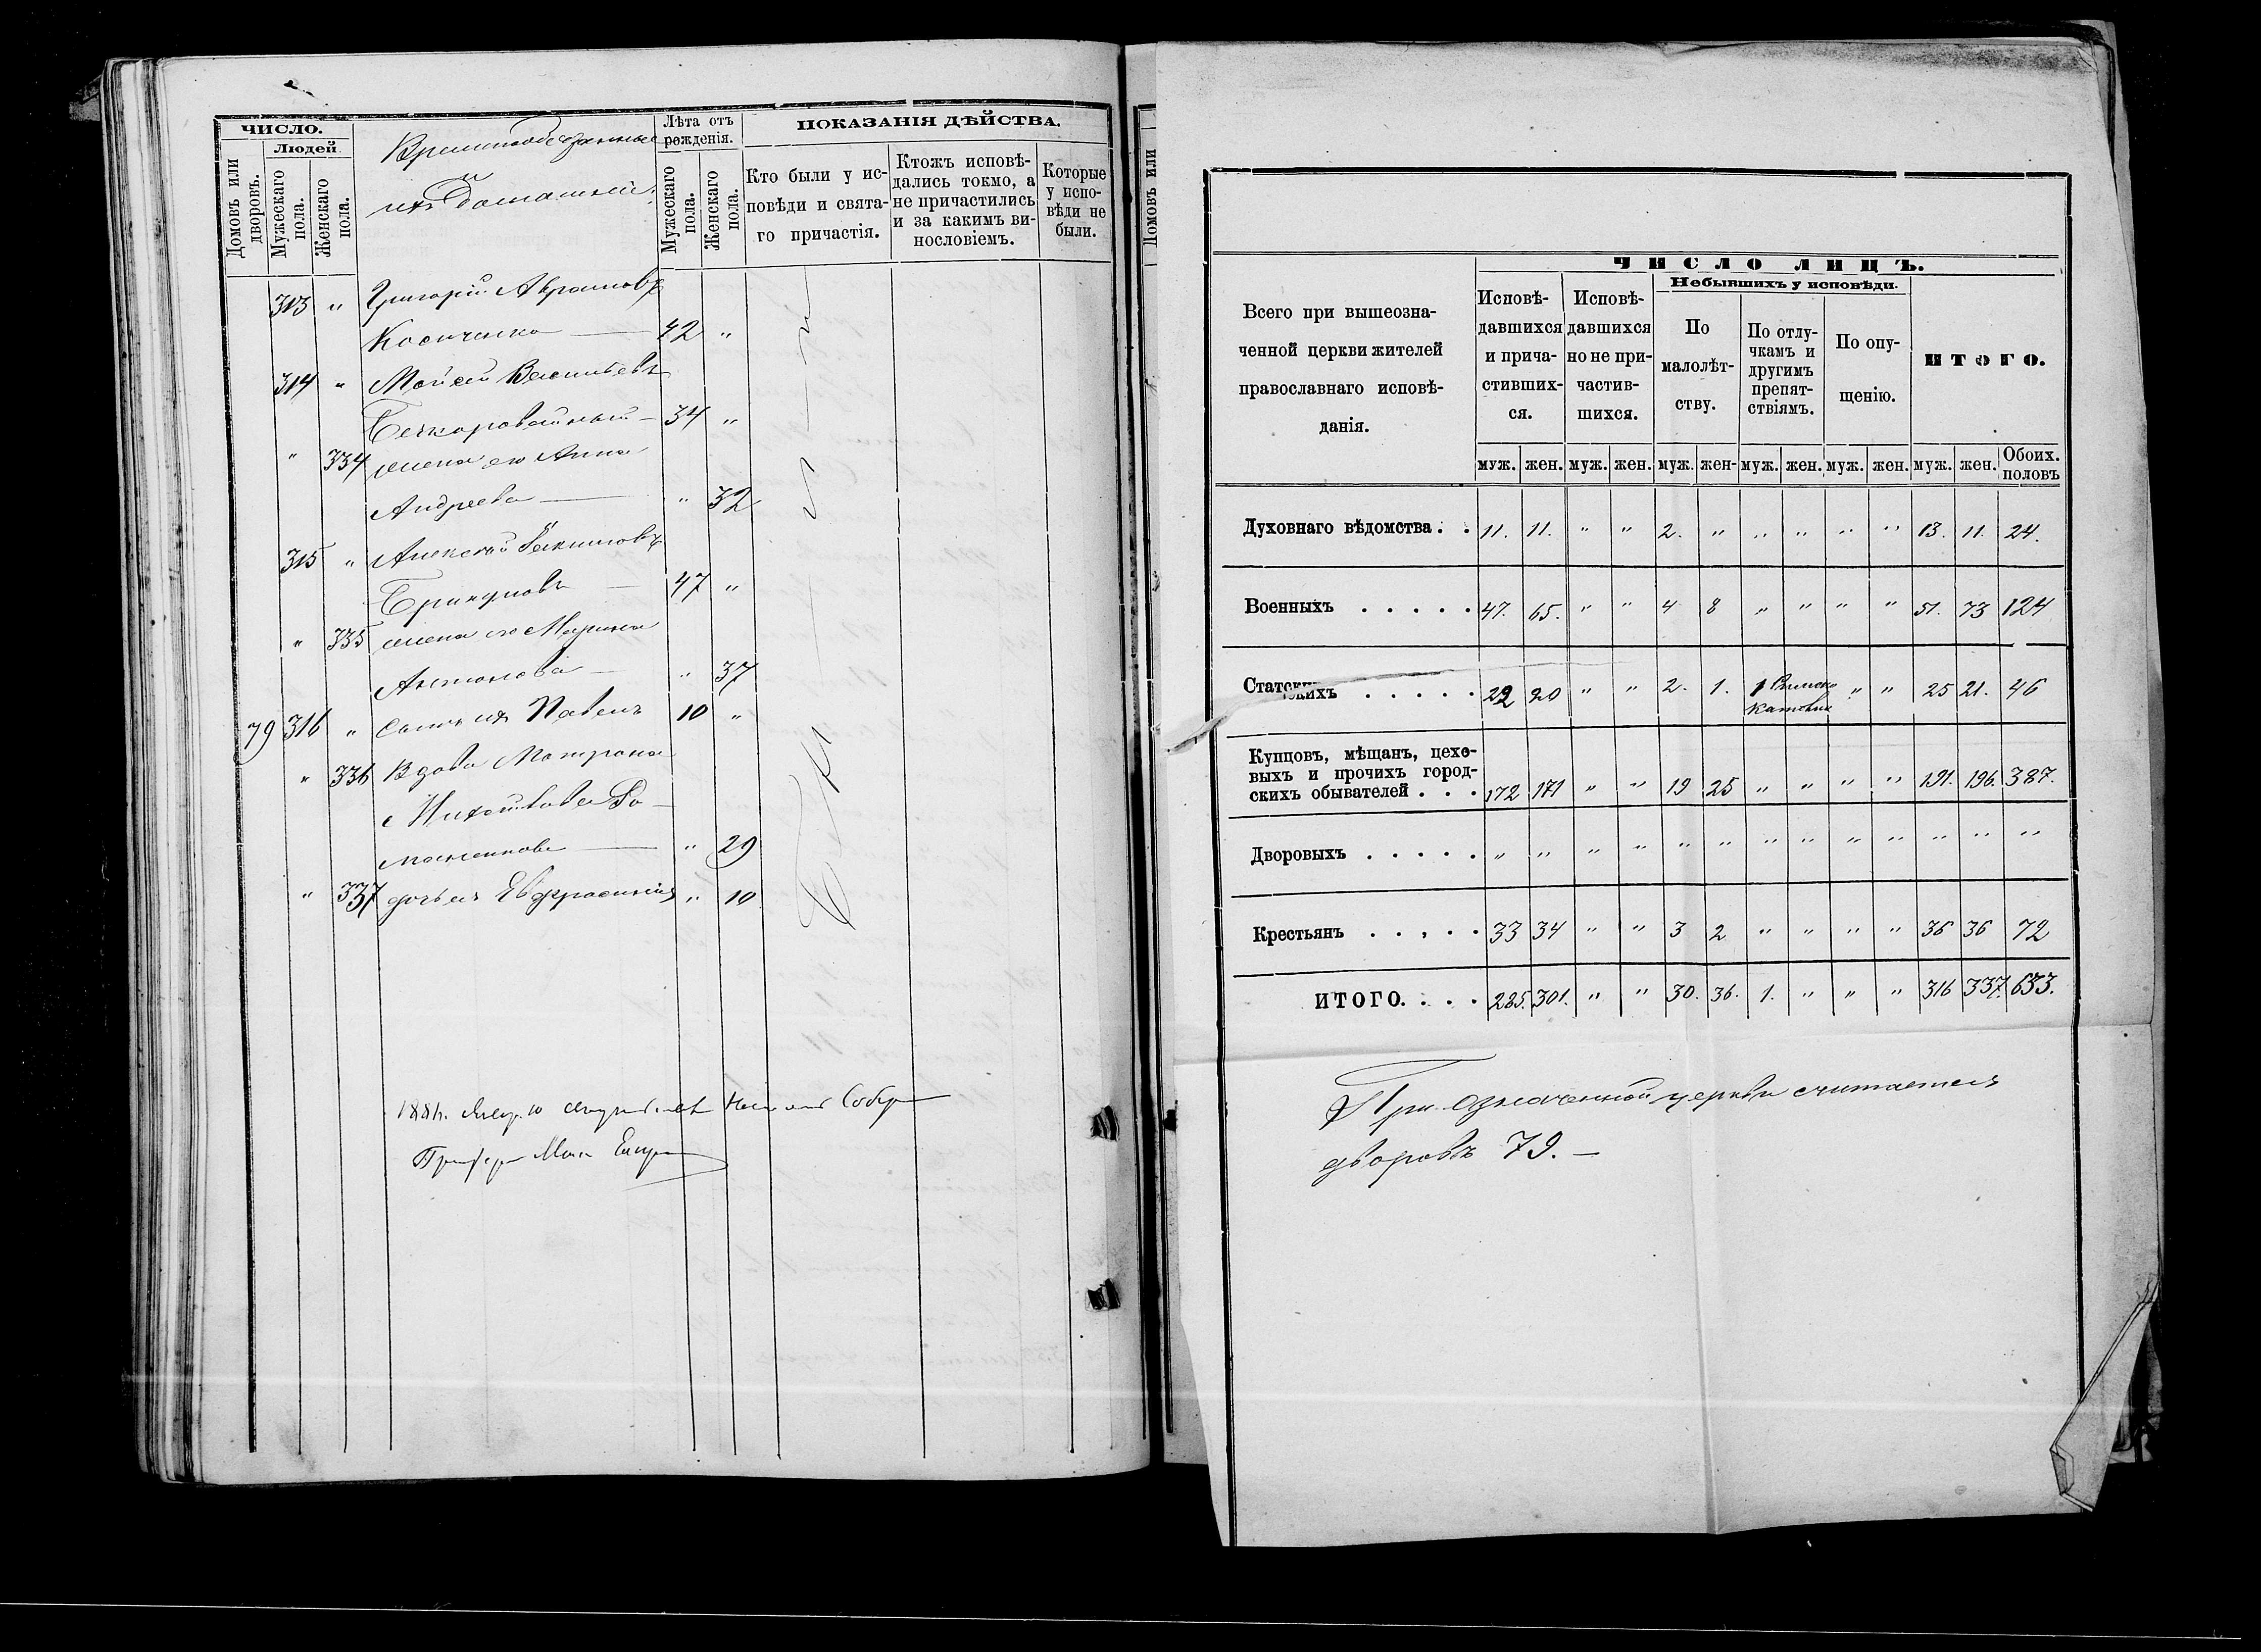 ЧИСЛО.
Людей
Домовъ или дворовъ.
Мужескаго пола.
Женскаго пола.
Временнообязанные
и
ихъ домашніе:
Лѣта отъ рожденія.
Мужескаго пола.
Женскаго пола.
ПОКАЗАНІЯ ДѢЙСТВА.
Кто были у ис-
повѣди и свята-
го причастія.
Ктожъ исповѣ-
дались токмо, а
не причастились
и за какимъ ви-
нословіемъ.
Которые
у испо-
вѣди не
были.
313 " Григорій Аврамовъ
Косиченко — 42 "
314 " Мойсей Васильевъ
Безкоровайный — 34 "
" 334 жена его Анна
Андреева — " 32
315 " Алексѣй Іакимовъ
47 "
" 335 жена его Марина
Антонова — " 37
79 316 " сынъ ихъ Павелъ 10 "
" 336 Вдова Матрона
Михайлова Ро-
маненкова — " 29
" 337 дочь ея Евфросинія " 10
Домовъ или
ЧИСЛО ЛИЦЪ.
Всего при вышеозна-
ченной церкви жителей
православнаго исповѣ-
данія.
Исповѣ-
давшихся
и прича-
стивших-
ся.
Исповѣ-
давшихся
но не при-
частив-
шихся.
Небывшихъ у исповѣди.
По
малолѣт-
ству.
По отлу-
чкамъ и
другимъ
препят-
ствіямъ.
По опу-
щенію.
ИТОГО.
муж. жен. муж. жен. муж. жен- муж. жен. муж. жен. муж. жен. Обоих. половъ
Духовнаго вѣдомства. . 11. 11. " " 2. " " " " " 13. 11. 24.
Военныхъ . . . . . 47. 65. " " 4 8 " " " " 51. 73 124
Статскихъ . . . . . 22 20 " " 2. 1. 1 Римско " " 25 21. 46
Католик
Купцовъ, мѣщанъ, цехо-
выхъ и прочихъ город-
скихъ обывателей . . . 172 171 " " 19 25 " " " " 191. 196. 387.
Дворовыхъ . . . . . " " " " " " " " " " " " "
Крестьянъ . . . . . 33 34 " " 3 2 " " " " 36 36 72
ИТОГО. . . . 285. 301. " " 30. 36. 1. " " " 316 337. 653.
При означенной церкви считается
дворовъ 79. —